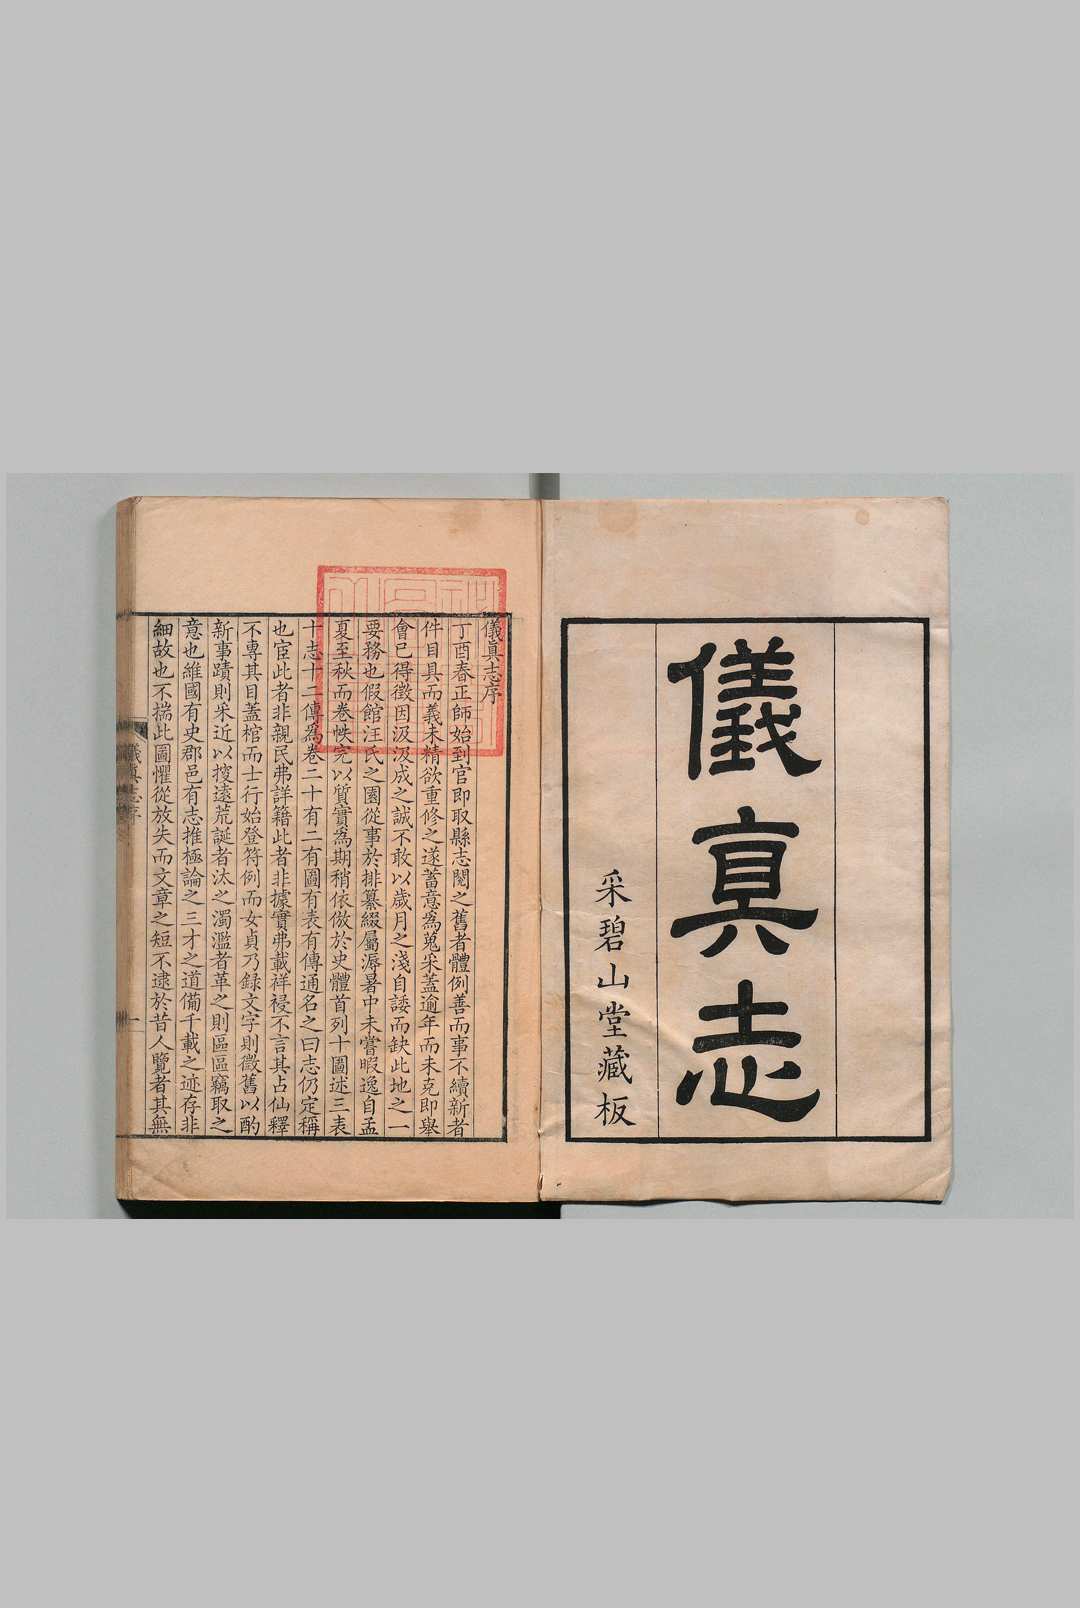 儀真志
采碧山堂藏板
儀真志序
丁酉春正師始到官即取縣志閱之舊者體例善而事不續新者
件目具而義未精欲重修之遂蓄意為蒐采蓋逾年而未克即舉
會已得徵因汲汲成之誠不敢以歲月之淺自諉而缺此地之一
要務也假館汪氏之園從事於排纂綴屬溽暑中未嘗暇逸自孟
夏至秋而卷帙完以質實為期稍依倣於史體首列十圖述三表
十志十二傳為卷二十有二有圖有表有傳通名之曰志仍定稱
也宦此者非親民弗詳籍此者非據實弗載祥祲不言其占仙釋
不專其目蓋棺而士行始登符例而女貞乃録文字則徵舊以酌
新事蹟則采近以搜遠荒誕者汰之濁濫者革之則區區竊取之
意也維國有史郡邑有志推極論之三才之道備千載之迹存非
細故也不揣此圖懼從放失而文章之短不逮於昔人覽者其無
儀真志序
一